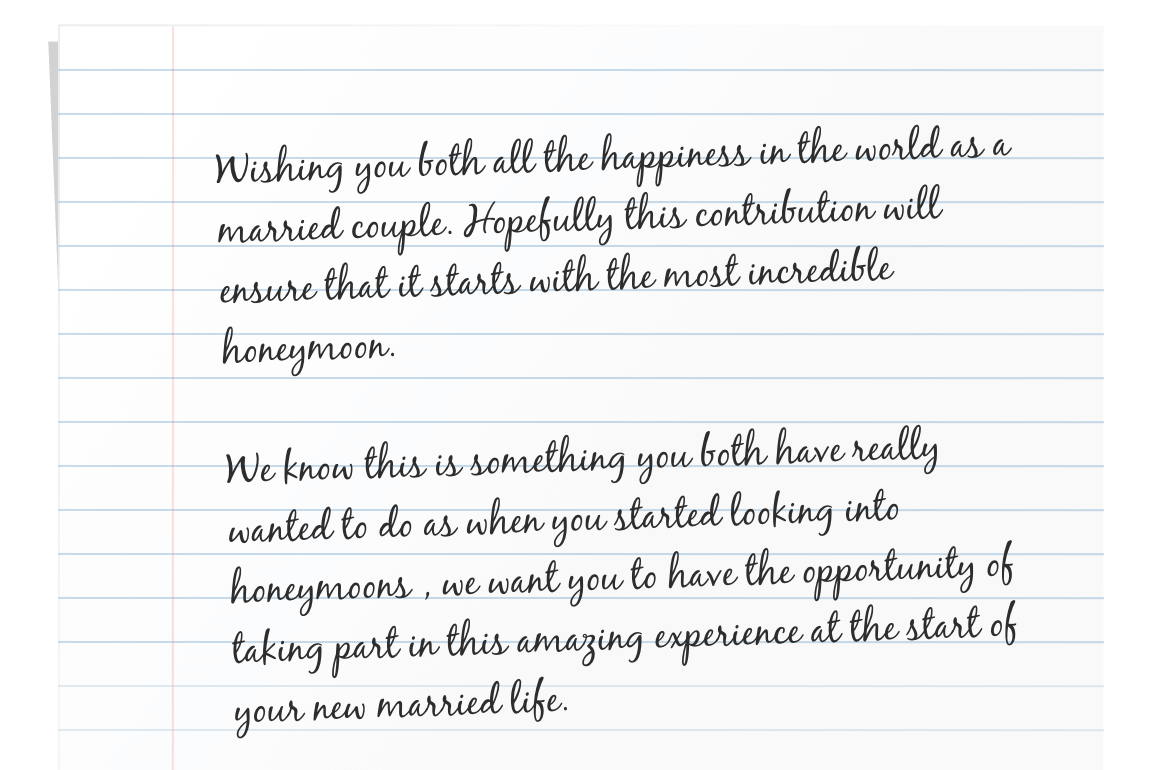 Wishing you both all the happiness in the world as a
married couple. Hopefully this contribution will
ensure that it starts with the most incredible
honeymoon.
We know this is something you both have really
wanted to do as when you started looking into
honeymoons , we want you to have the opportunity of
taking part in this amazing experience at the start of
your new married life.